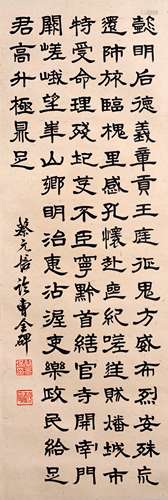 懿明后德義章貢王庭征鬼方威布烈安殊荒
還師旅臨槐里感孔懷赴喪紀嗟逆賊燔城市
特受命理殘圮芟不臣寧黔首繕官寺開南門
闕嵯峨望華山鄉明治惠沾渥吏樂政民給足
君高升極鼎足
蔡元培臨曹全碑